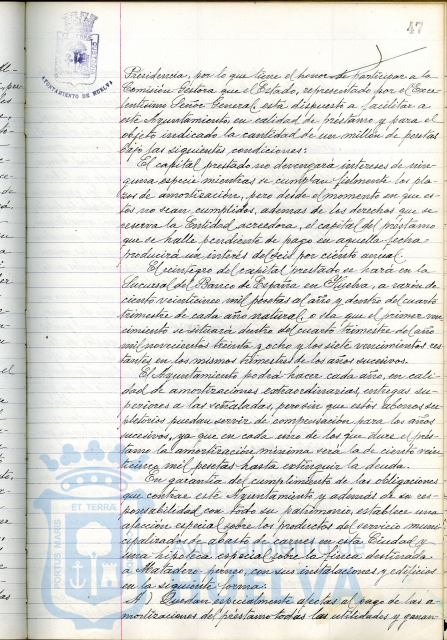 47
AYUNTAMIENTO DE HUELVA
Presidencia, por lo que tiene el honor de participar a la
Comisión Gestora que el Estado, representado por el Exce-
lentísimo Señor General, está dispuesto a facilitar a
este Ayuntamiento, en calidad de préstamo y para el
objeto indicado la cantidad de un millón de pesetas
bajo las siguientes condiciones:
El capital prestado no devengará intereses de nin-
guna especie mientras se cumplan fielmente los pla-
zos de amortización, pero desde el momento en que es-
tos no sean cumplidos, además de los derechos que se
reserva la Entidad acreedora, el capital del préstamo
que se halle pendiente de pago en aquella fecha
producirá un interés del seis por ciento anual.
El reintegro del capital prestado se hará en la
Sucursal del Banco de España en Huelva, a razón de
ciento veinticinco mil pesetas al año y dentro del cuarto
trimestre de cada año natural, o sea que el primer ven-
cimiento se situará dentro del cuarto trimestre del año
mil novecientos treinta y ocho y los siete vencimientos res-
tantes en los mismos trimestres de los años sucesivos.
El Ayuntamiento podrá hacer cada año, en cali-
dad de amortizaciones extraordinarias, entregas su-
periores a las señaladas, pero sin que estos abonos su-
pletorios puedan servir de compensación para los años
sucesivos, ya que en cada uno de los que dure el prés-
tamo la amortización mínima será la de ciento vein-
ticinco mil pesetas hasta extinguir la deuda.
En garantía del cumplimiento de las obligaciones
que contrae este Ayuntamiento y además de su res-
ponsabilidad con todo su patrimonio, establece una
afección especial sobre los productos del servicio muni-
cipalizados de abasto de carnes en esta Ciudad y
una hipoteca especial sobre la finca destinada
a Matadero, con sus instalaciones y edificios
en la siguiente forma:
A) Quedan especialmente afectas al pago de las a-
mortizaciones del préstamo todas las utilidades y ganan-
PORTUS MARIS ET TERRAE
HUELVA